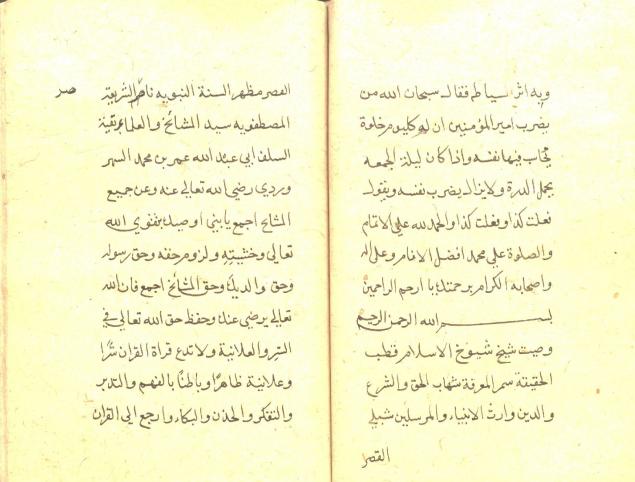 وبه اثر سياط فقال سبحان الله من
يضرب امير المؤمنين ان له كل يوم خلوة
يحاسب فيها نفسه واذا كان ليلة الجمعه
يحمل الدرة ولايزال يضرب نفسه ويقول
فعلت كذا وفعلت كذا والحمد لله علي الاتمام
والصلوة علي محمد افضل الانام وعلى اله
واصحابه الكرام برحمتك يا ارحم الراحمين
بسم الله الرحمن الرحيم
وصيت شيخ شيوخ الاسلام قطب
الحقيقة سر المعرفة شهاب الحق والشرع
والدين وارث الانبياء والمرسلين شبلي
القصر
العصر مظهر السنة النبويه ناظم الشريعة
صر
المصطفويه سيد المشائخ والعلماء بقية
السلف ابي عبد الله عمر بن محمد السهر
وردي رضي الله تعالي عنه وعن جميع
المشائخ اجمع يابني اوصيك بتقوي الله
تعالى وخشيته ولزوم حقه وحق رسوله
وحق والديك وحق المشائخ اجمع فان الله
تعالي يرضي عنك وحفظ حق الله تعالي في
السر والعلانية ولا تدع قراة القران سرا
وعلانية ظاهرا وباطنا بالفهم والتدبر
والتفكر والحذن والبكاء وارجع الى القران